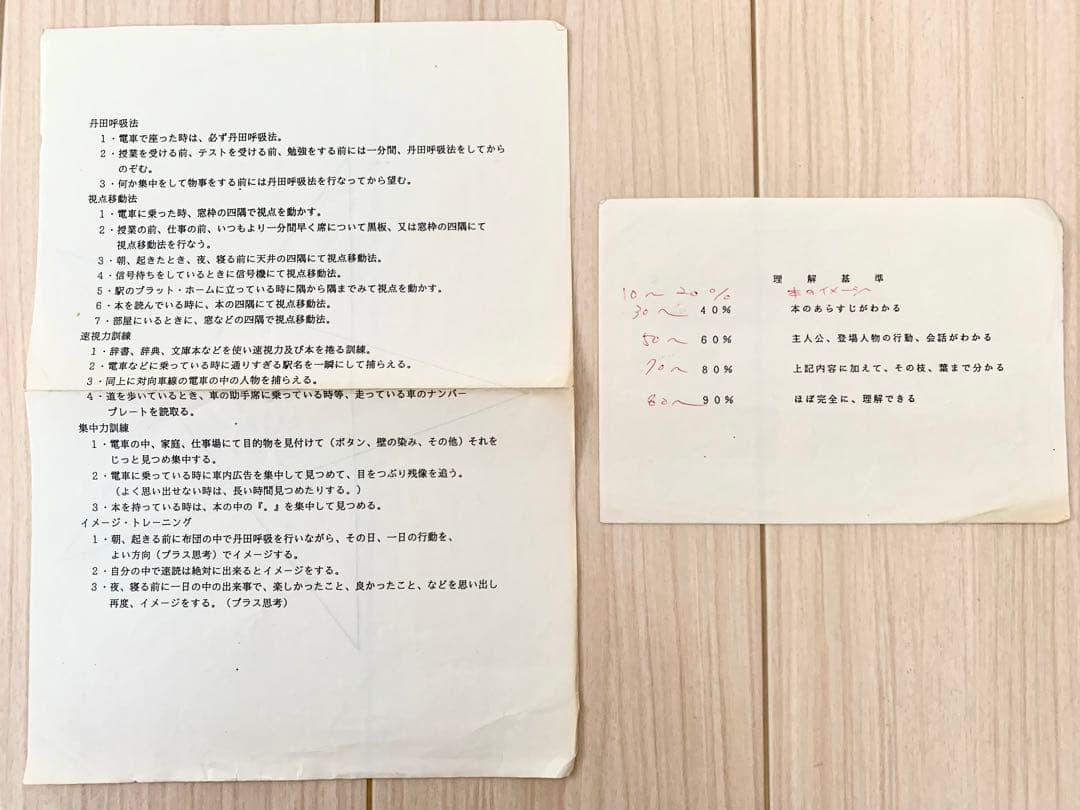 丹田呼吸法
1・電車で座った時は、必ず丹田呼吸法。
2・授業を受ける前、テストを受ける前、勉強をする前には一分間、丹田呼吸法をしてから
のぞむ。
3・何か集中をして物事をする前には丹田呼吸法を行なってから望む。
視点移動法
1・電車に乗った時、窓枠の四隅で視点を動かす。
2・授業の前、仕事の前、いつもより一分間早く席について黒板、又は窓枠の四隅にて
視点移動法を行なう。
3・朝、起きたとき、夜、寝る前に天井の四隅にて視点移動法。
4・信号待ちをしているときに信号機にて視点移動法。
5・駅のプラット・ホームに立っている時に隅から隅までみて視点を動かす。
6・本を読んでいる時に、本の四隅にて視点移動法。
7・部屋にいるときに、窓などの四隅で視点移動法。
速視力訓練
1・辞書、辞典、文庫本などを使い速視力及び本を捲る訓練。
2・電車などに乗っている時に通りすぎる駅名を一瞬にして捕らえる。
3・同上に対向車線の電車の中の人物を捕らえる。
4・道を歩いているとき、車の助手席に乗っている時等、走っている車のナンバー
プレートを読取る。
集中力訓練
1・電車の中、家庭、仕事場にて目的物を見付けて(ボタン、壁の染み、その他)それを
じっと見つめ集中する。
2・電車に乗っている時に車内広告を集中して見つめて、目をつぶり残像を追う。
(よく思い出せない時は、長い時間見つめたりする。)
3・本を持っている時は、本の中の『。』を集中して見つめる。
イメージ・トレーニング
1・朝、起きる前に布団の中で丹田呼吸を行いながら、その日、一日の行動を、
よい方向(プラス思考)でイメージする。
2・自分の中で速読は絶対に出来るとイメージをする。
3・夜、寝る前に一日の中の出来事で、楽しかったこと、良かったこと、などを思い出し
再度、イメージをする。(プラス思考)
理解基準
10〜20% 本のイメージ
30〜40% 本のあらすじがわかる
50〜60% 主人公、登場人物の行動、会話がわかる
70〜80% 上記内容に加えて、その枝、葉まで分かる
80〜90% ほぼ完全に、理解できる